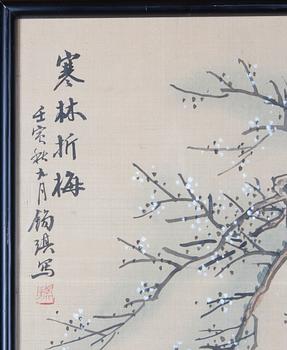 寒林折梅
壬寅秋九月钧琪写